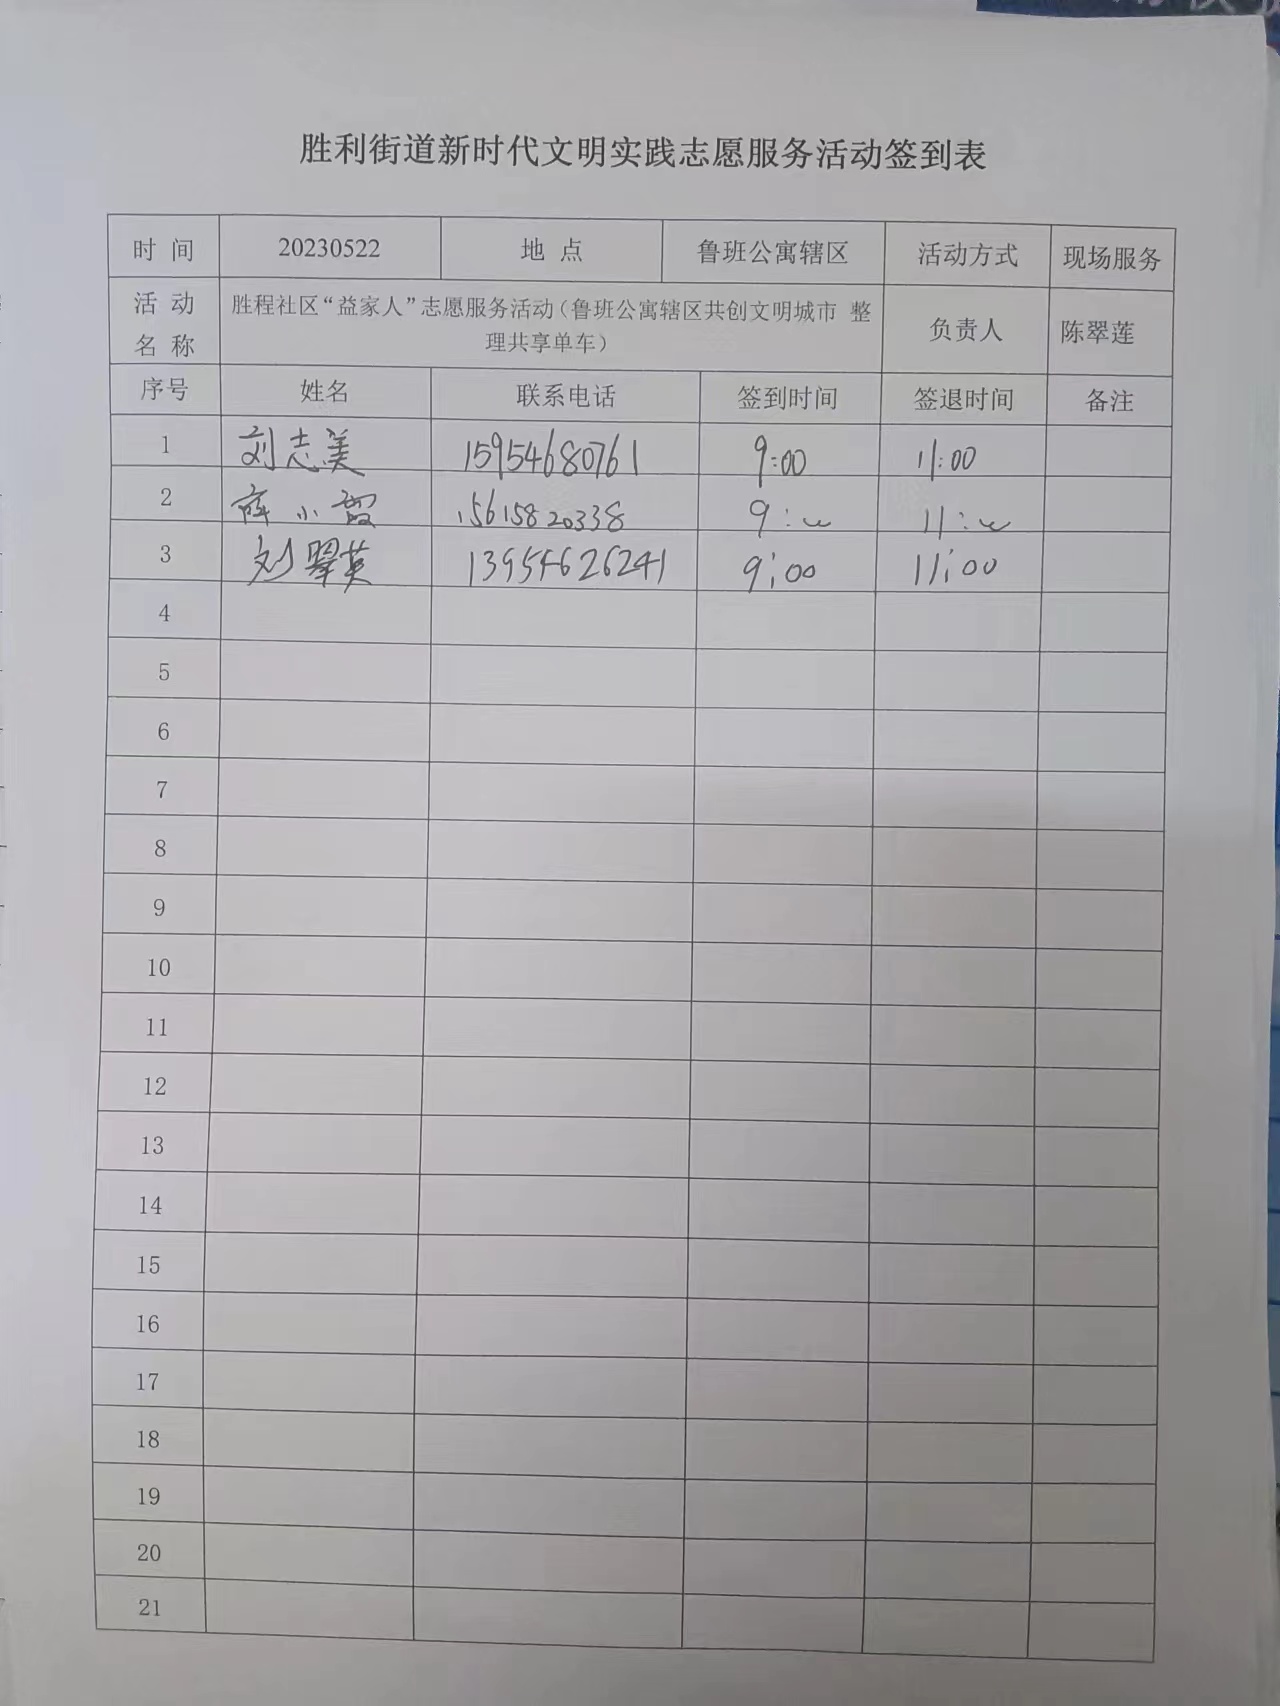 胜利街道新时代文明实践志愿服务活动签到表
时 间 20230522 地 点 鲁班公寓辖区 活动方式 现场服务
活 动 名 称 胜程社区“益家人”志愿服务活动（鲁班公寓辖区共创文明城市 整
理共享单车） 负责人 陈翠莲
序号 姓名 联系电话 签到时间 签退时间 备注
1 刘志美 15954680761 9:00 11:00
2 薛小霞 15615820338 9:00 11:00
3 刘翠英 13954626241 9:00 11:00
4
5
6
7
8
9
10
11
12
13
14
15
16
17
18
19
20
21